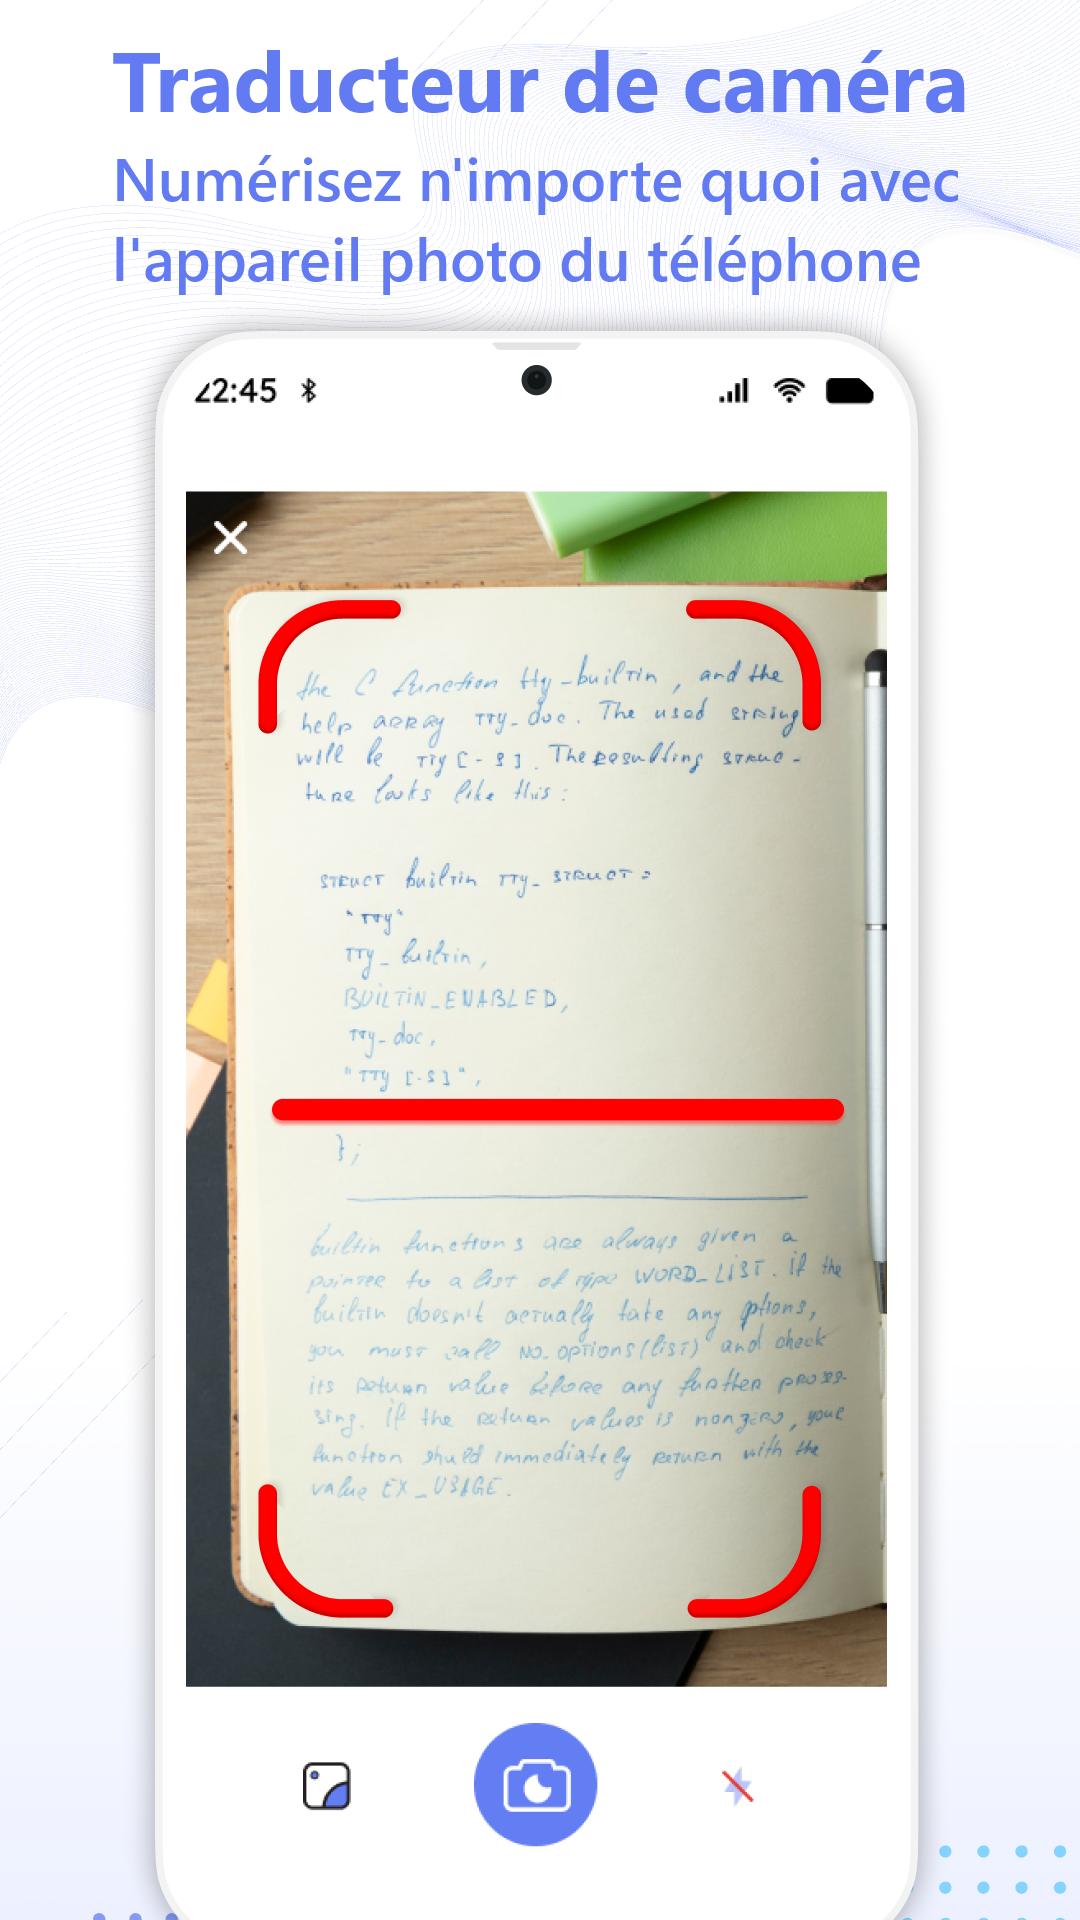 Traducteur de caméra
Numérisez n'importe quoi avec
l'appareil photo du téléphone
22:45
the C function tty_builtin, and the
help array tty_doc. The used string
will be tty [-s]. The resulting struc-
ture looks like this:
struct builtin tty_struct =
"tty"
tty_builtin,
BUILTIN_ENABLED,
tty_doc,
"tty [-s]",
};
builtin functions are always given a
pointer to a list of type WORD_LIST. if the
builtin doesn't actually take any options,
you must call no_options(list) and check
its return value before any further proces-
sing. if the return values is nonzero, your
function should immediately return with the
value EX_USAGE.